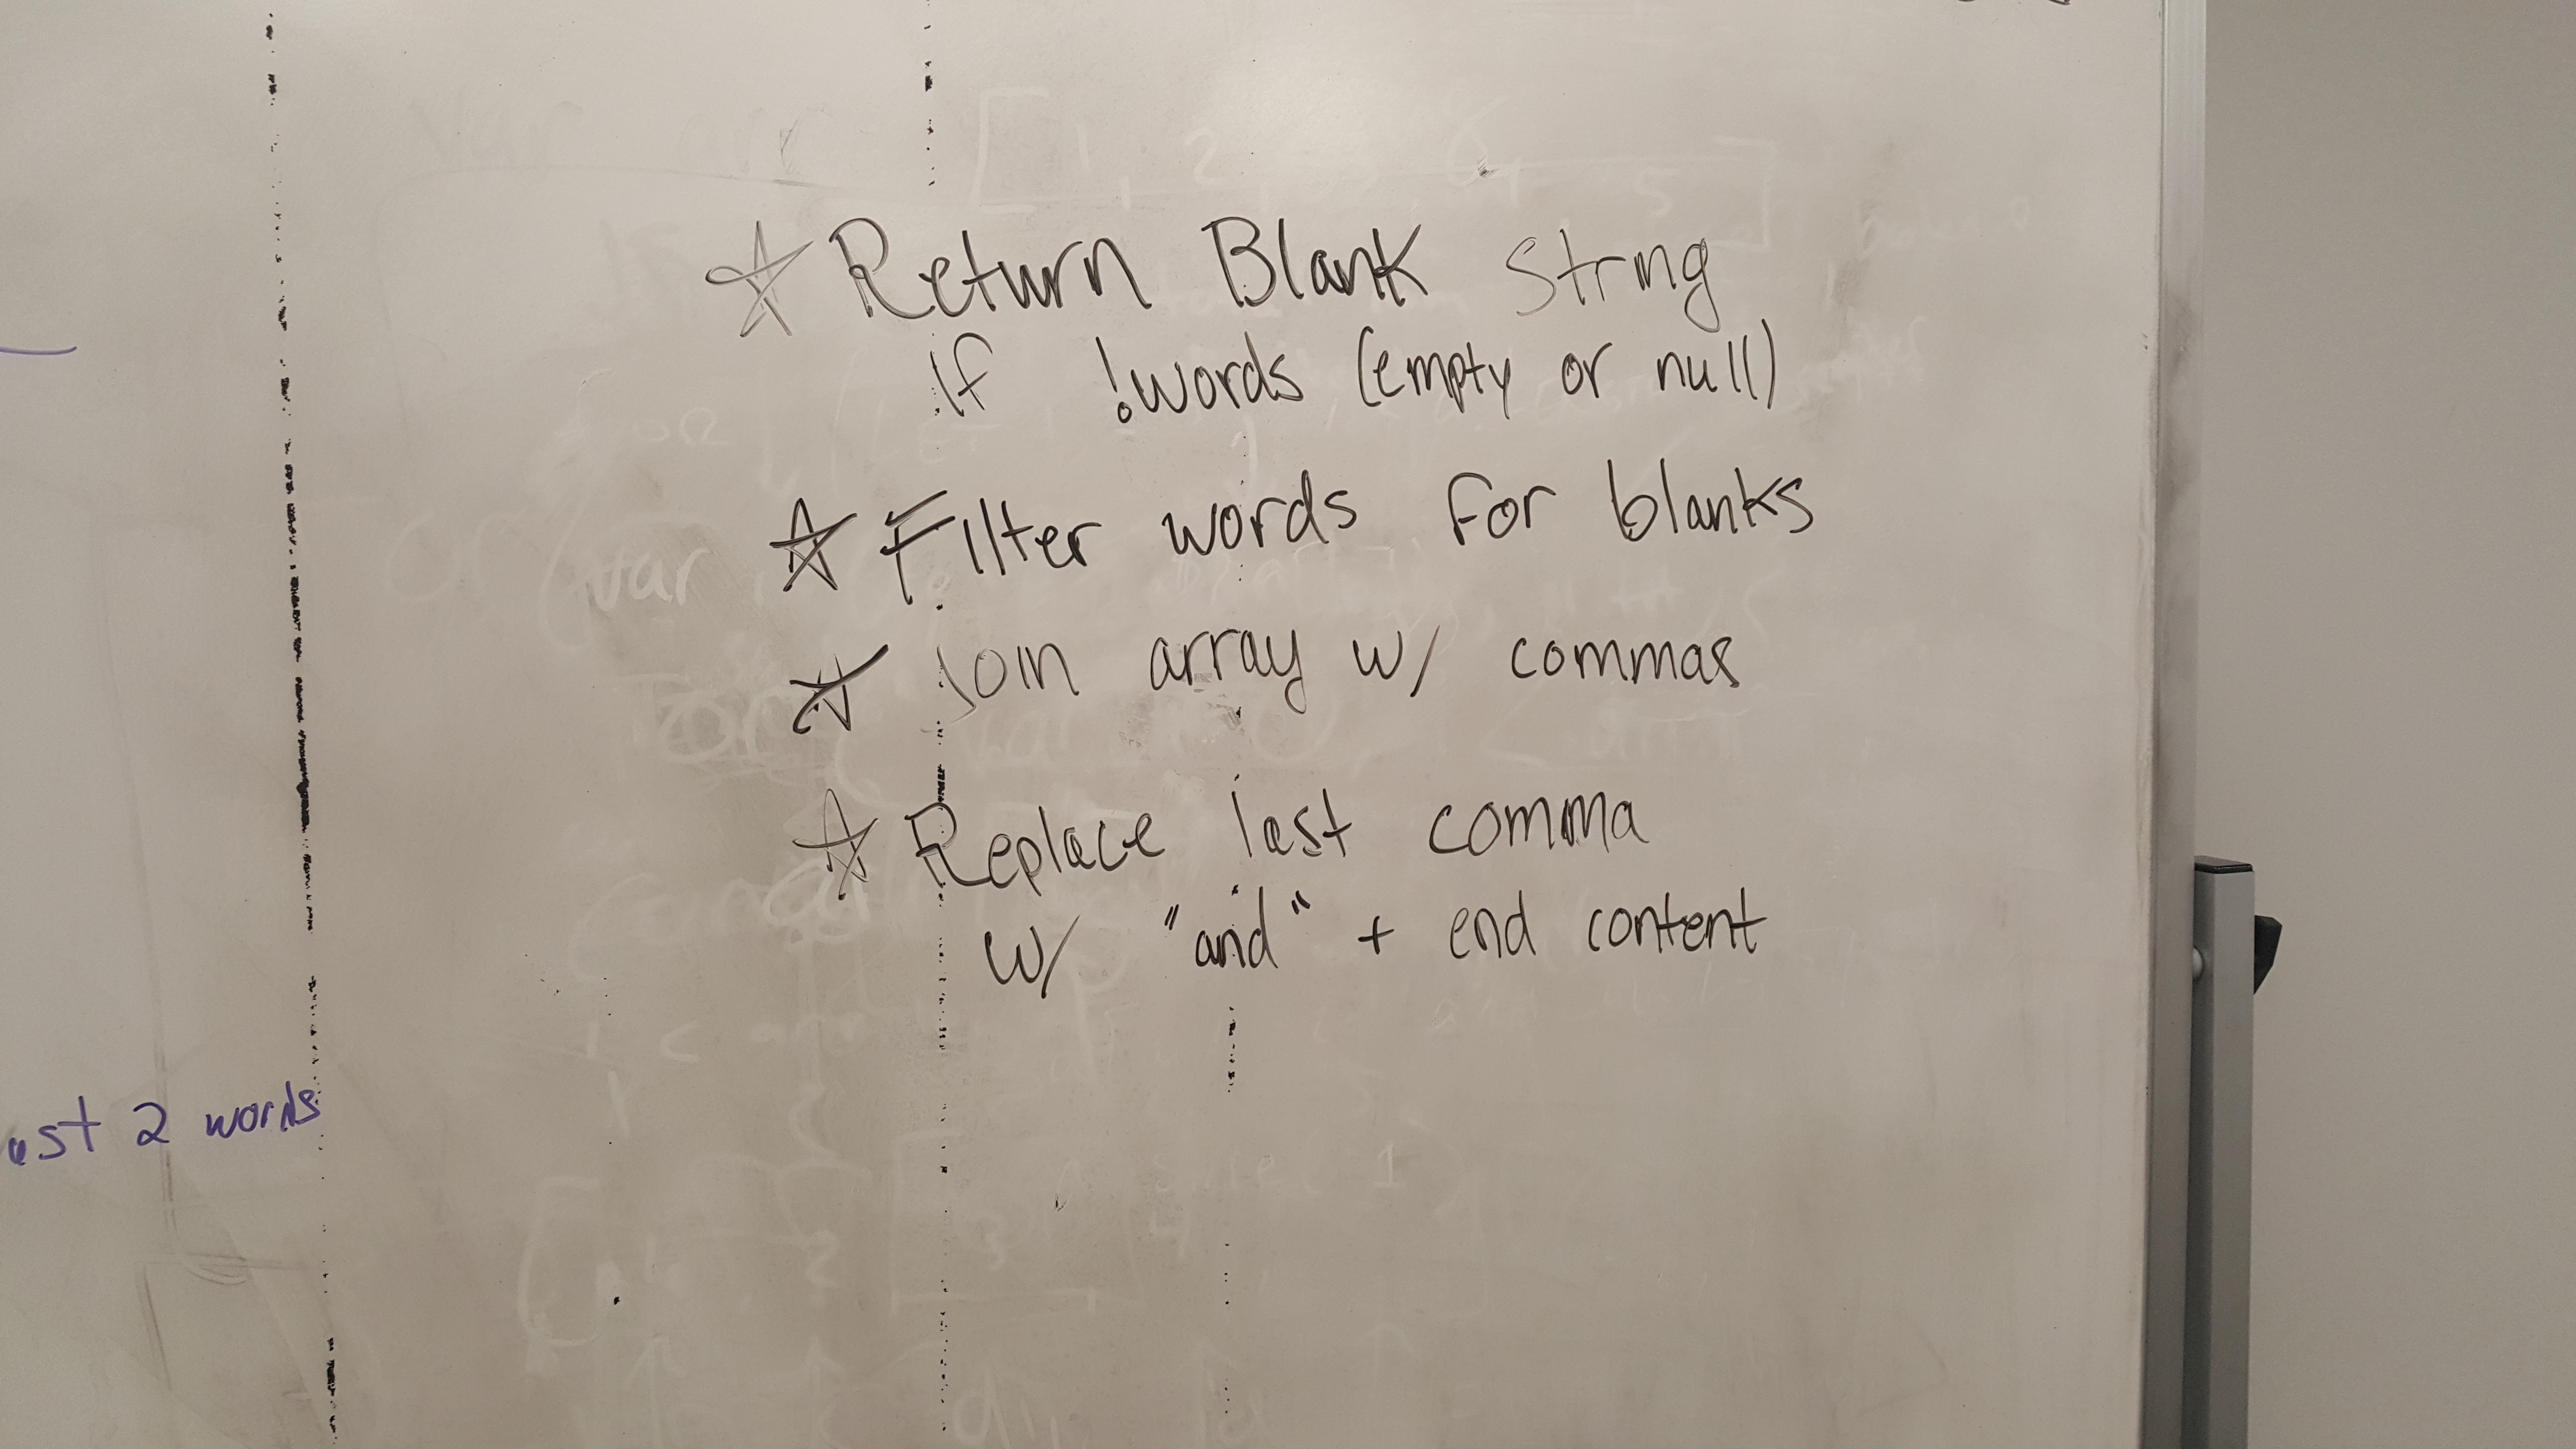 ☆ Return Blank String
if !words (empty or null)
☆ Filter words for blanks
☆ Join array w/ commas
☆ Replace last comma
w/ "and" + end content
2 words